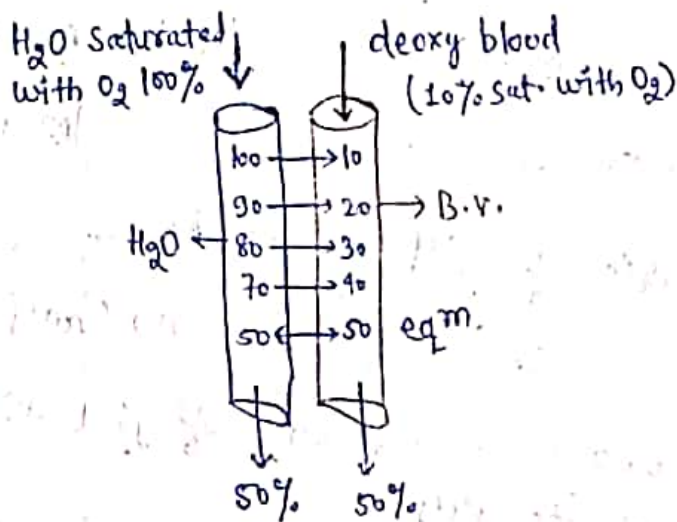 H2O saturated
with O2 100%
deoxy blood
(10% sat. with O2)
100 → 10
90 → 20 → B.V.
H2O ← 80 → 30
70 → 40
50 ↔ 50 eqm.
50% 50%